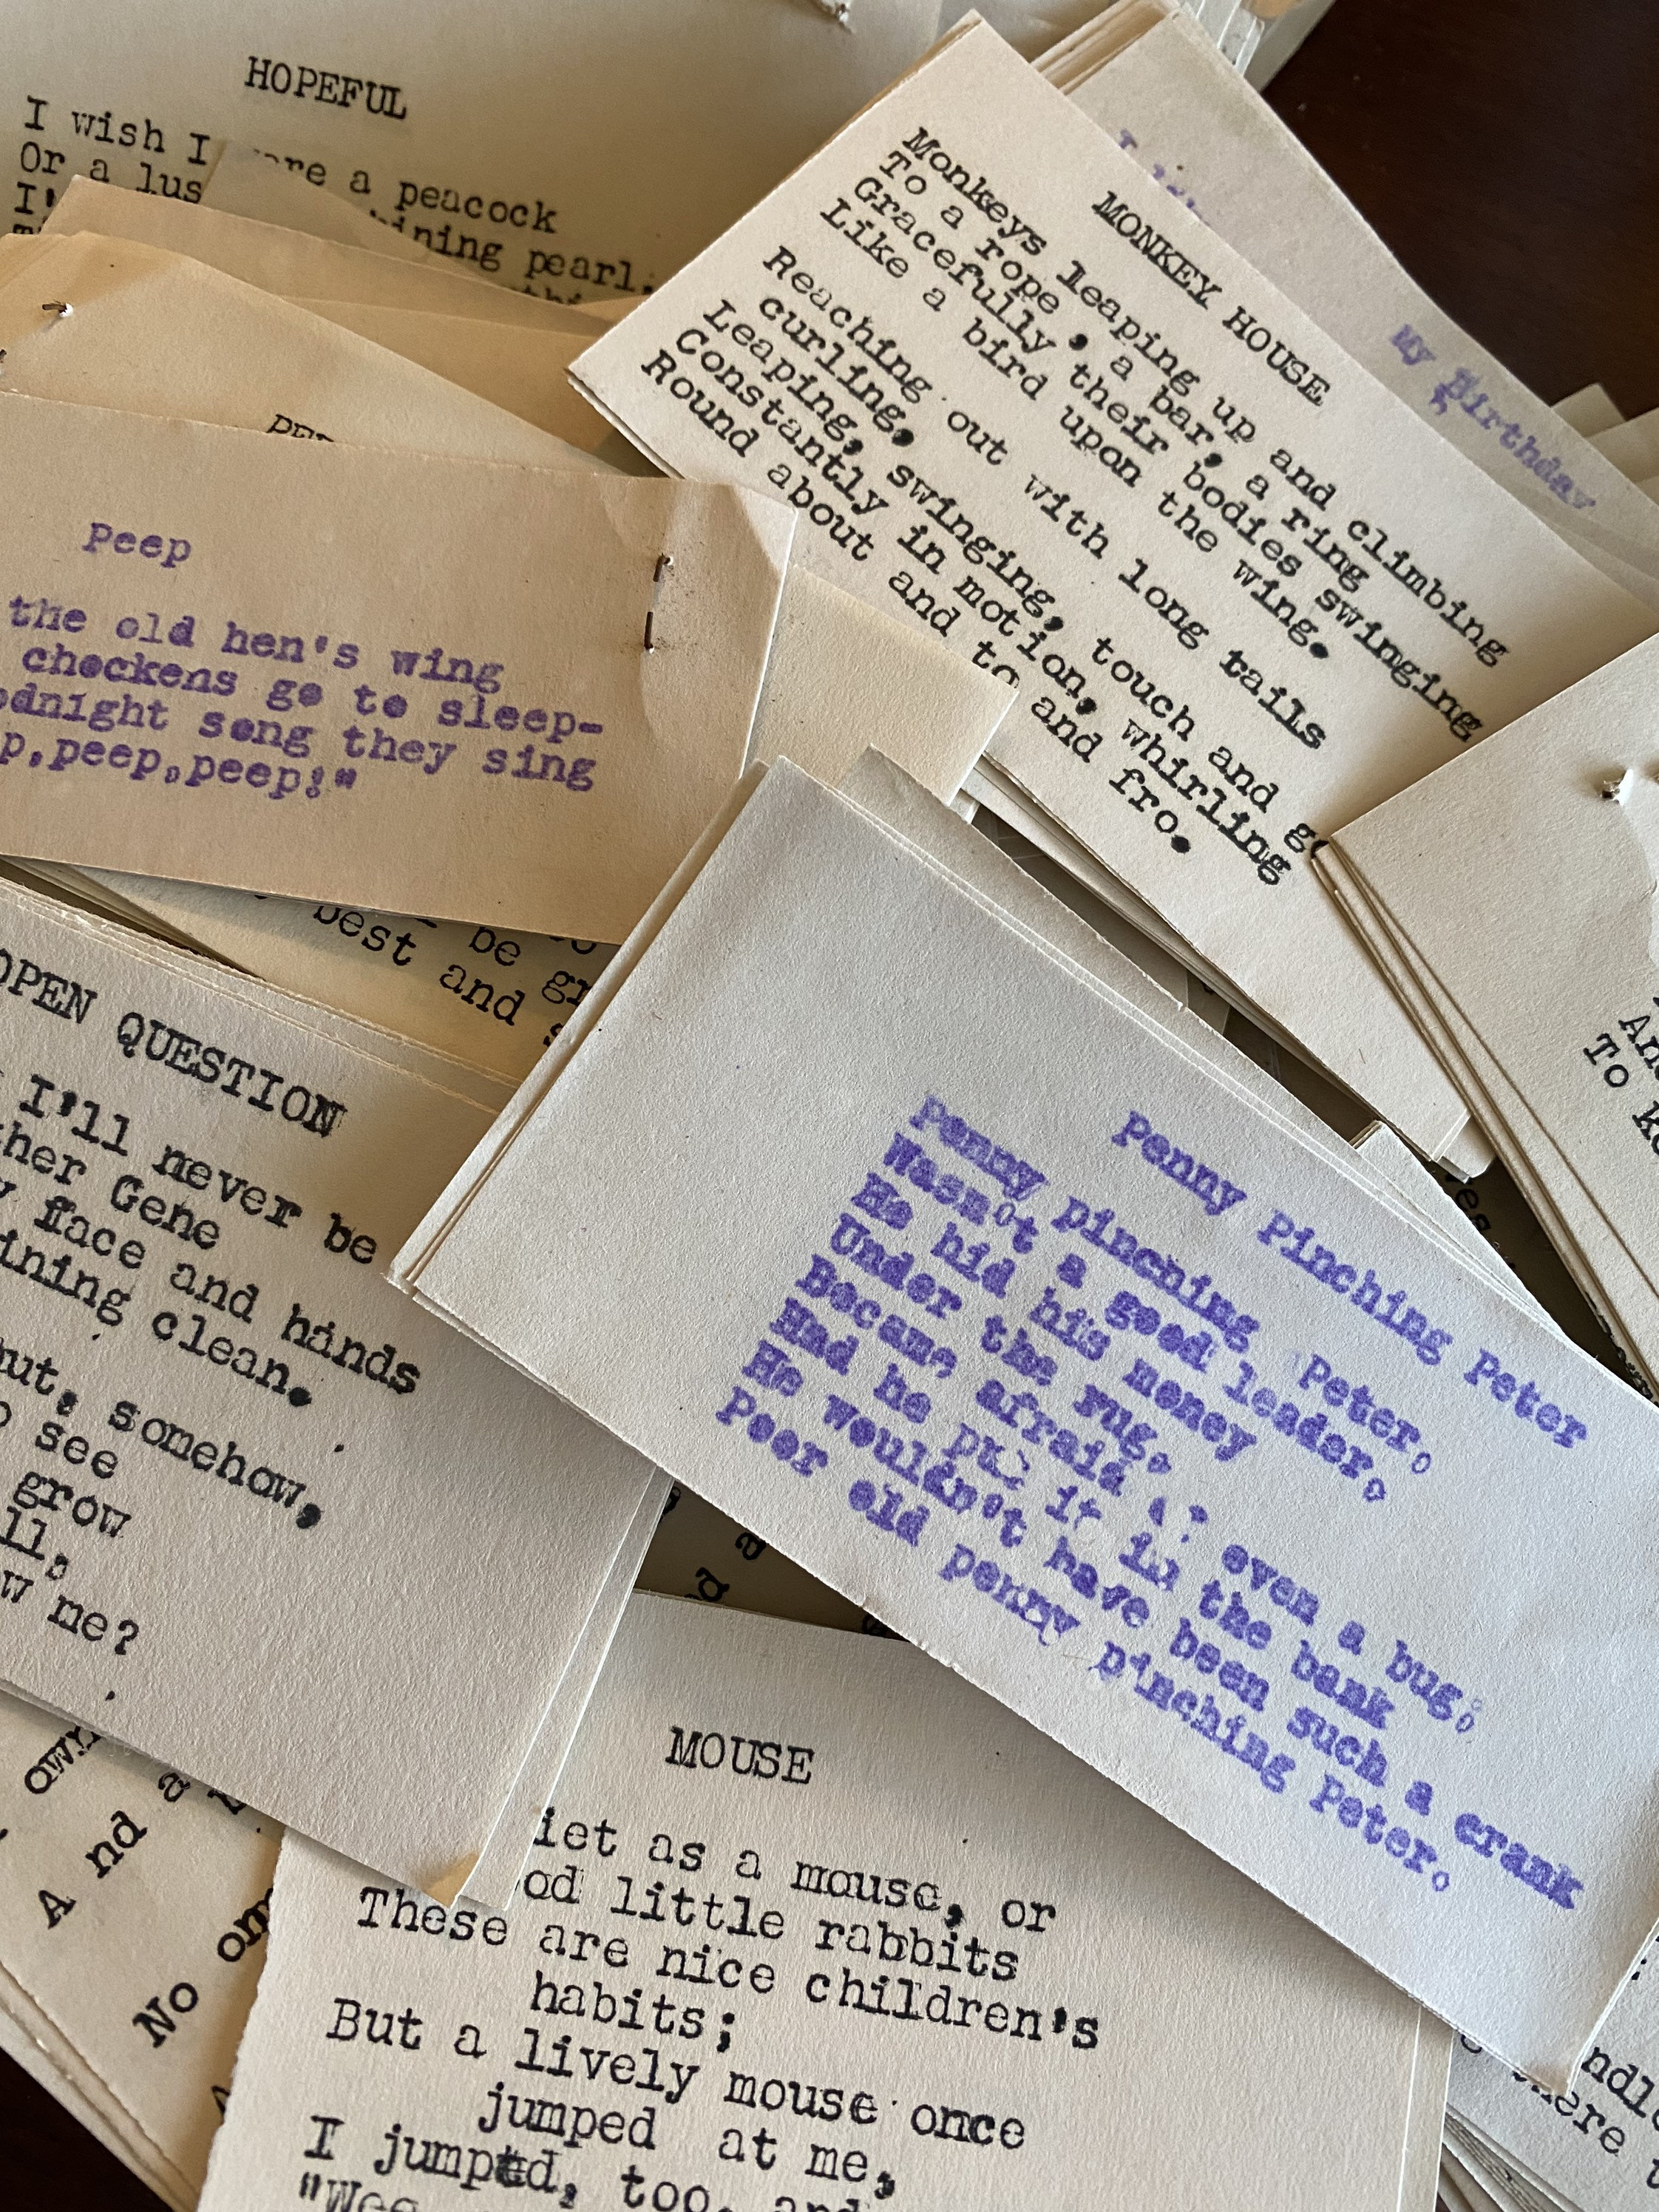 HOPEFUL
I wish I were a peacock
Or a lus
ining pearl,
MONKEY HOUSE
Monkeys leaping up and climbing
To a rope, a bar, a ring
Gracefully their bodies swinging
Like a bird upon the wing.
Reaching out with long tails
curling,
Leaping, swinging, touch and go
Constantly in motion, whirling
Round about and to and fro.
My Birthday
Peep
the old hen's wing
chockens go to sleep-
odnight song they sing
p,peep,peep!"
be gr
best and s
OPEN QUESTION
I'll never be
ther Gene
y face and hands
ining clean.
ut, somehow,
o see
grow
ll,
ow me?
Penny Pinching Peter
Penny pinching Peter,
Wasn't a good leader,
He hid his money
Under the rug,
Became, afraid of even a bug,
Had he put it in the bank
He wouldn't have been such a crank
Poor old penny pinching Peter.
An
To k
MOUSE
iet as a mouse, or
od little rabbits
These are nice children's
habits;
But a lively mouse once
jumped at me,
I jumped, too, and
"Wee
own
And a
No one
ndle
there